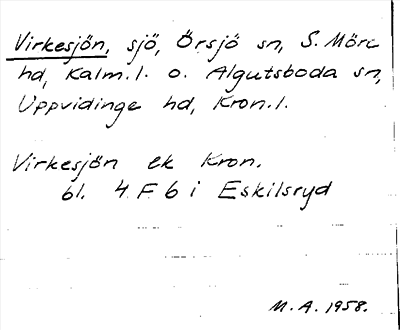 Virkesjön, sjö, Örsjö sn, S. Möre
hd, Kalm. l. o. Algutsboda sn,
Uppvidinge hd, Kron. l.
Virkesjön ek Kron.
bl. 4 F 6 i Eskilsryd
M. A. 1958.